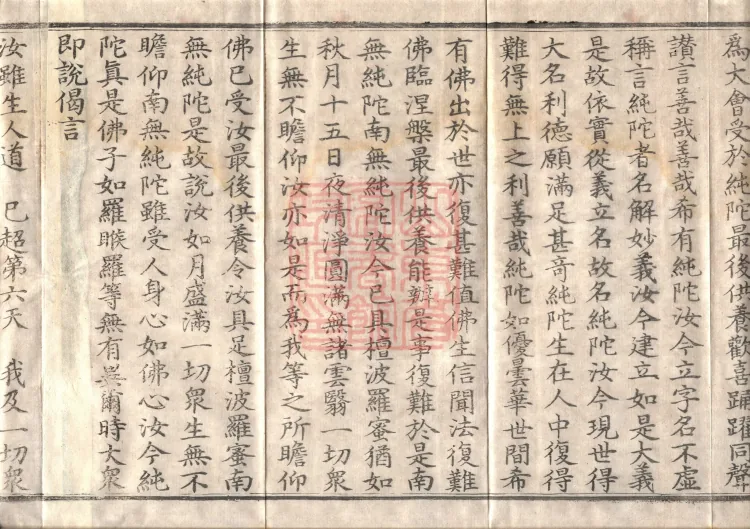 為大會受於純陀最後供養歡喜踊躍同聲
讚言善哉善哉希有純陀汝今立字名不虛
稱言純陀者名解妙義汝今建立如是大義
是故依實從義立名故名純陀汝今現世得
大名利德願滿足甚奇純陀生在人中復得
難得無上之利善哉純陀如優曇華世間希
有佛出於世亦復甚難值佛生信聞法復難
佛臨涅槃最後供養能辦是事復難於是南
無純陀南無純陀汝今已具檀波羅蜜猶如
秋月十五日夜清淨圓滿無諸雲翳一切衆
生無不瞻仰汝亦如是而為我等之所瞻仰
佛已受汝最後供養令汝具足檀波羅蜜南
無純陀是故說汝如月盛滿一切衆生無不
瞻仰南無純陀雖受人身心如佛心汝今純
陀真是佛子如羅睺羅等無有異爾時大衆
即說偈言
汝雖生人道 已超第六天 我及一切衆